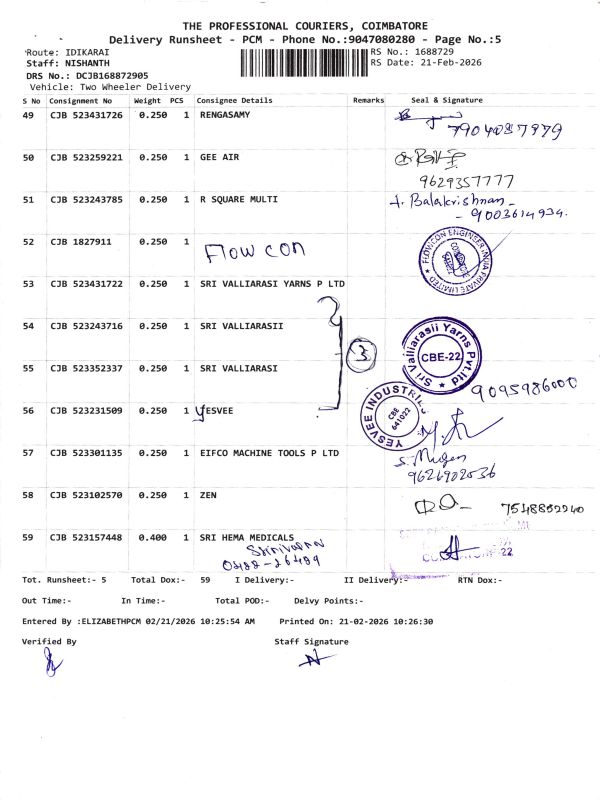 THE PROFESSIONAL COURIERS, COIMBATORE
Delivery Runsheet - PCM - Phone No.:9047080280 - Page No.:5
Route: IDIKARAI
RS No.: 1688729
Staff: NISHANTH
RS Date: 21-Feb-2026
DRS No.: DCJB168872905
Vehicle: Two Wheeler Delivery
S No Consignment No Weight PCS Consignee Details Remarks Seal & Signature
49 CJB 523431726 0.250 1 RENGASAMY
7904087979
50 CJB 523259221 0.250 1 GEE AIR
9629357777
51 CJB 523243785 0.250 1 R SQUARE MULTI
Balakrishnan
- 9003614934.
52 CJB 1827911 0.250 1 Flow con
FLOWCON ENGINEER INDIA PRIVATE LIMITED
53 CJB 523431722 0.250 1 SRI VALLIARASI YARNS P LTD
54 CJB 523243716 0.250 1 SRI VALLIARASII
3
Sri Valliarasii Yarns Pvt Ltd
CBE-22
55 CJB 523352337 0.250 1 SRI VALLIARASI
9095986000
56 CJB 523231509 0.250 1 YESVEE
YESVEE INDUSTRIES
CBE
641022
57 CJB 523301135 0.250 1 EIFCO MACHINE TOOLS P LTD
S. Mugen
9626902036
58 CJB 523102570 0.250 1 ZEN
7548882240
59 CJB 523157448 0.400 1 SRI HEMA MEDICALS
Tot. Runsheet:- 5 Total Dox:- 59 I Delivery:- II Delivery:- RTN Dox:-
Out Time:- In Time:- Total POD:- Delvy Points:-
Entered By :ELIZABETHPCM 02/21/2026 10:25:54 AM Printed On: 21-02-2026 10:26:30
Verified By Staff Signature